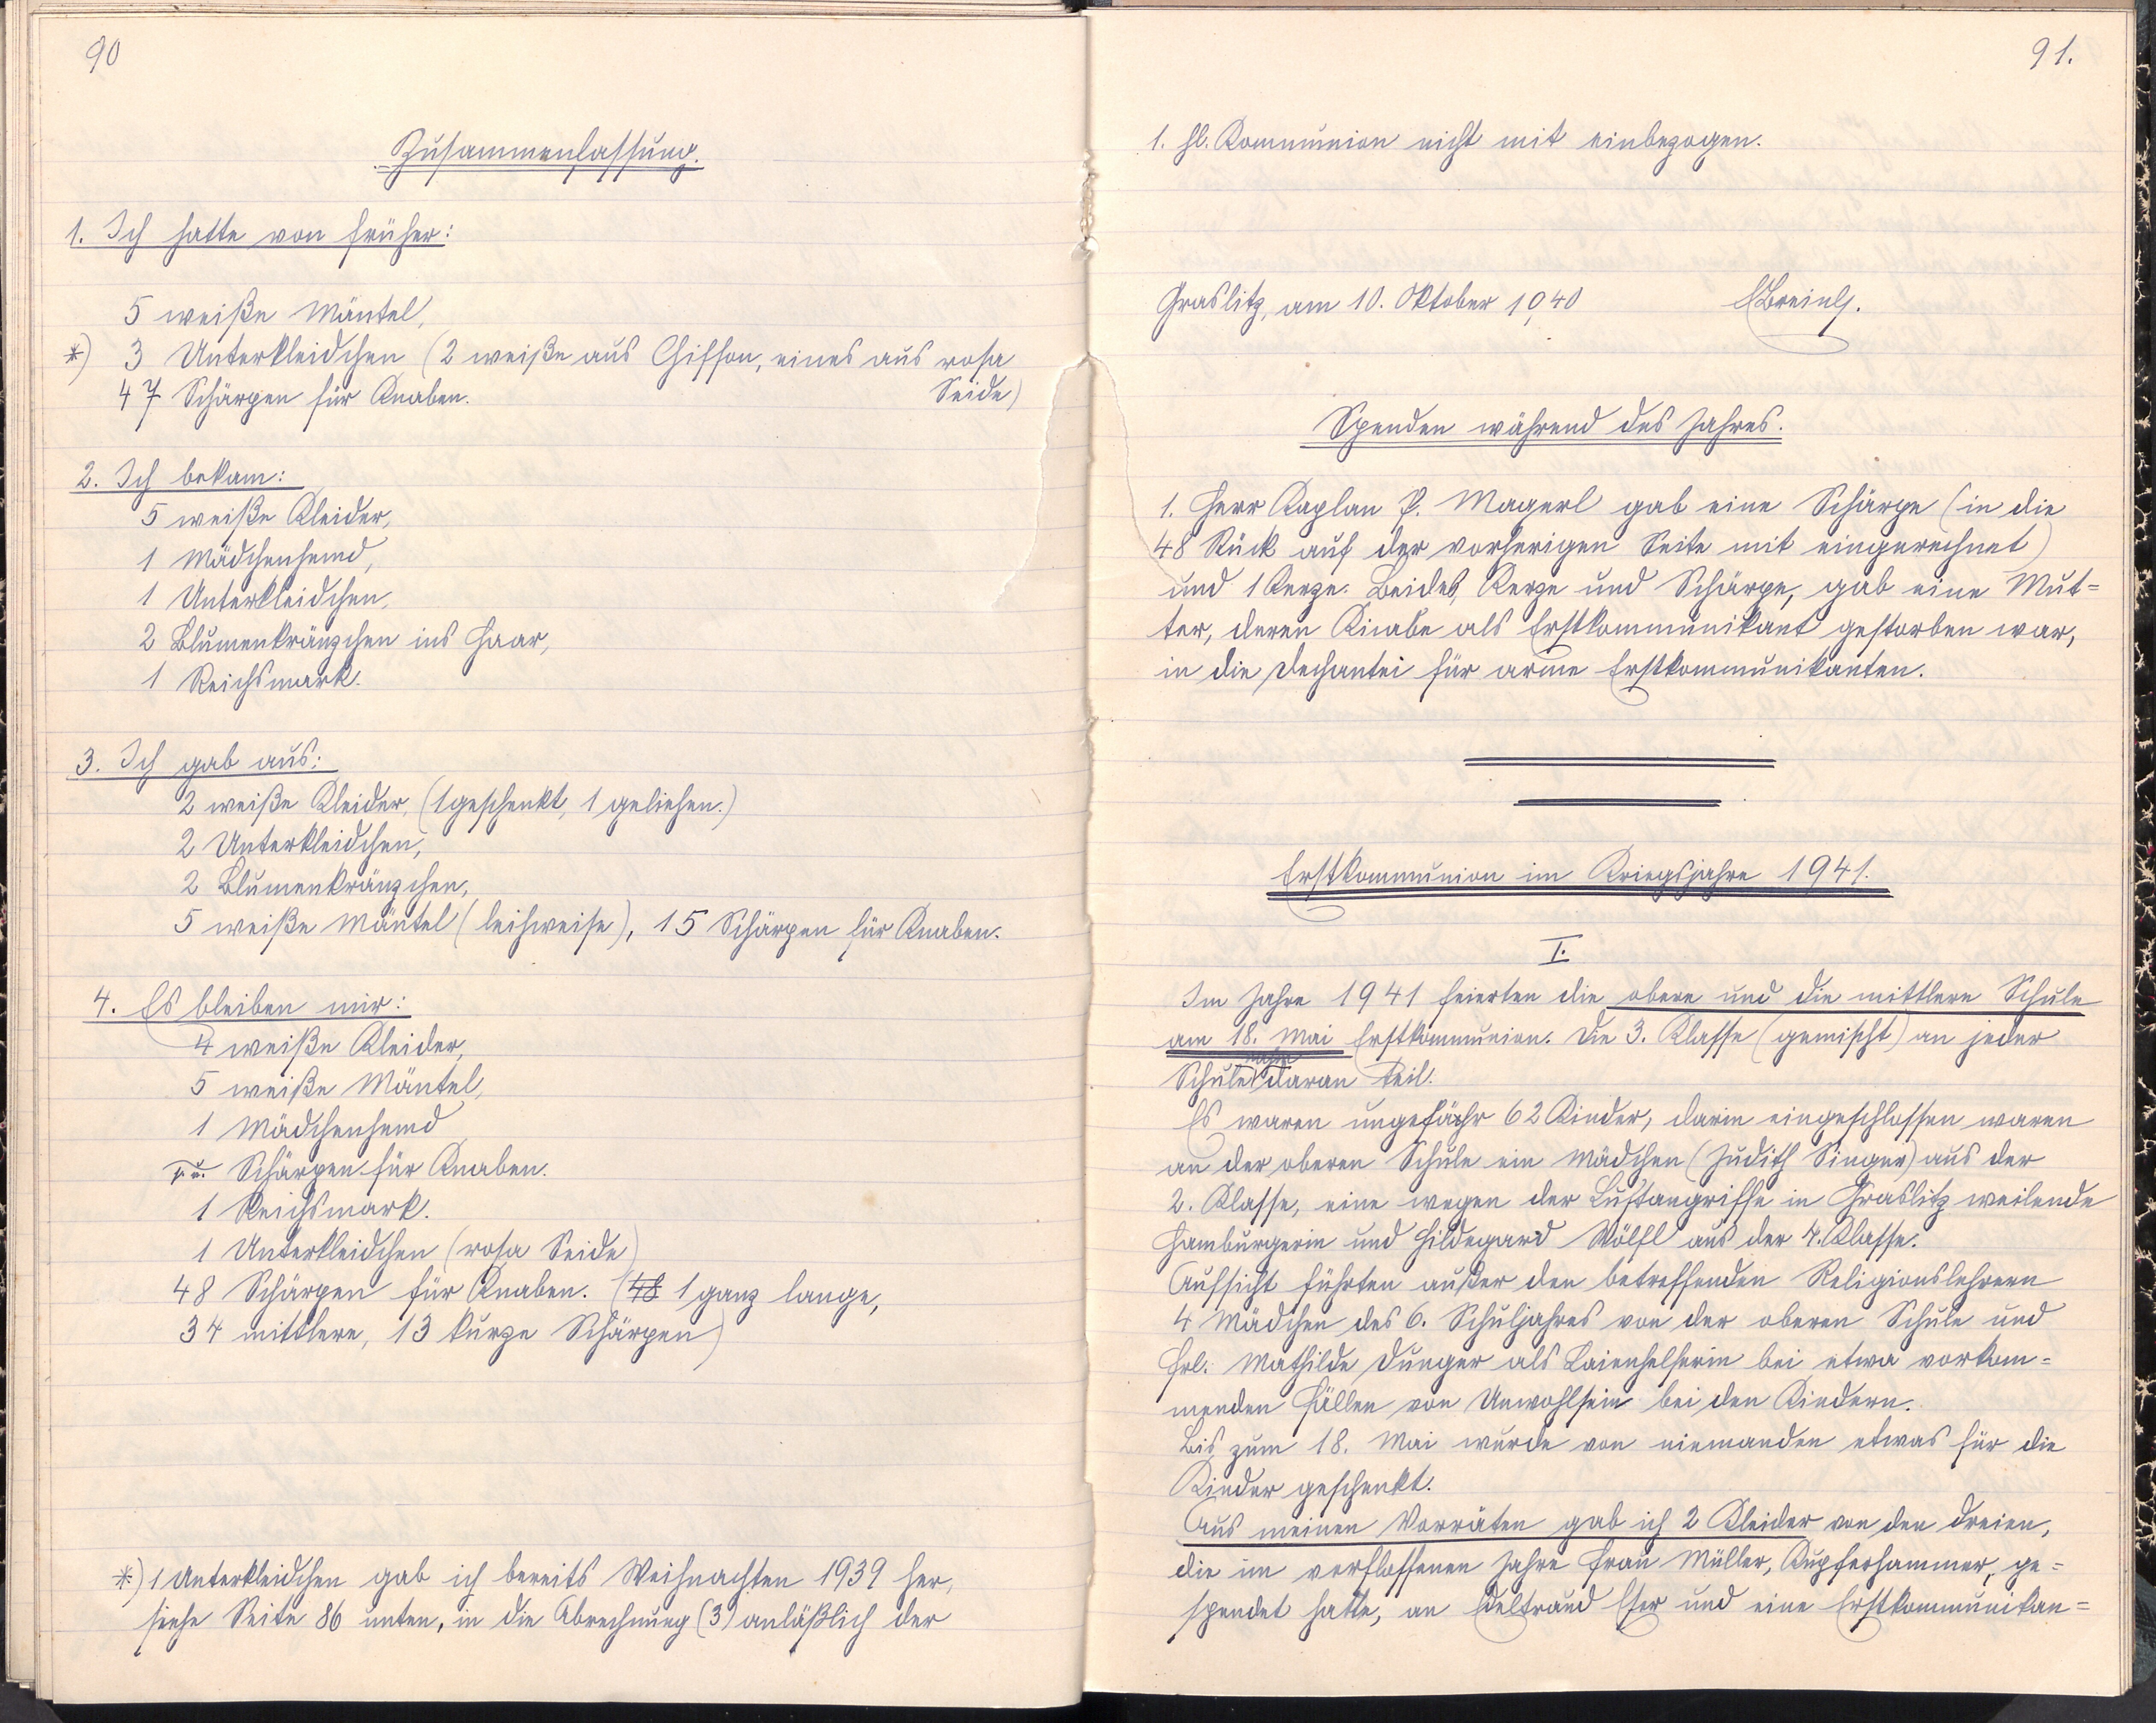 90
Zusammenfassung.
1. Ich hatte von früher:
5 weiße Mäntel,
*) 3 Unterkleidchen (2 weiße aus Chiffon, eines aus rosa
Seide)
47 Schärpen für Knaben.
2. Ich bekam:
5 weiße Kleider,
1 Mädchenhemd,
1 Unterkleidchen,
2 Blumenkränzchen ins Haar,
1 Reichsmark.
3. Ich gab aus:
2 weiße Kleider, (1 geschenkt, 1 geliehen.)
2 Unterkleidchen,
2 Blumenkränzchen,
5 weiße Mäntel (leihweise), 15 Schärpen für Knaben.
4. Es bleiben mir:
4 weiße Kleider,
5 weiße Mäntel,
1 Mädchenhemd
Schärpen für Knaben.
1 Reichsmark.
1 Unterkleidchen (rosa Seide)
48 Schärpen für Knaben. (48 1 ganz lange,
34 mittlere, 13 kurze Schärpen)
*) 1 Unterkleidchen gab ich bereits Weihnachten 1939 her,
siehe Seite 86 unten, in die Abrechnung (3) anläßlich der
91.
1. hl. Kommunion nicht mit einbezogen.
Graslitz, am 10. Oktober 1940
Spenden während des Jahres.
1. Herr Kaplan P. Magerl gab eine Schärpe (in die
48 Stück auf der vorherigen Seite mit eingerechnet)
und 1 Kerze. Beides, Kerze und Schärpe, gab eine Mut=
ter, deren Knabe als Erstkommunikant gestorben war,
in die Dechantei für arme Erstkommunikanten.
Erstkommunion im Kriegsjahre 1941.
I.
Im Jahre 1941 feierten die obere und die mittlere Schule
am 18. Mai Erstkommunion. Die 3. Klasse (gemischt) an jeder
Schule nahm daran teil.
Es waren ungefähr 62 Kinder, darin eingeschlossen waren
an der oberen Schule ein Mädchen (Judith Singer) aus der
2. Klasse, eine wegen der Luftangriffe in Graslitz weilende
Hamburgerin und Hildegard Wölfl aus der 4. Klasse.
Aufsicht führten außer den betreffenden Religionslehrern
4 Mädchen des 6. Schuljahres von der oberen Schule und
Frl. Mathilde Dunger als Laienhelferin bei etwa vorkom=
menden Fällen von Unwohlsein bei den Kindern.
Bis zum 18. Mai wurde von niemanden etwas für die
Kinder geschenkt.
Aus meinen Vorräten gab ich 2 Kleider von den dreien,
die im verflossenen Jahre Frau Müller, Kupferhammer, ge=
spendet hatte, an Edeltraud Eser und eine Erstkommunikan=